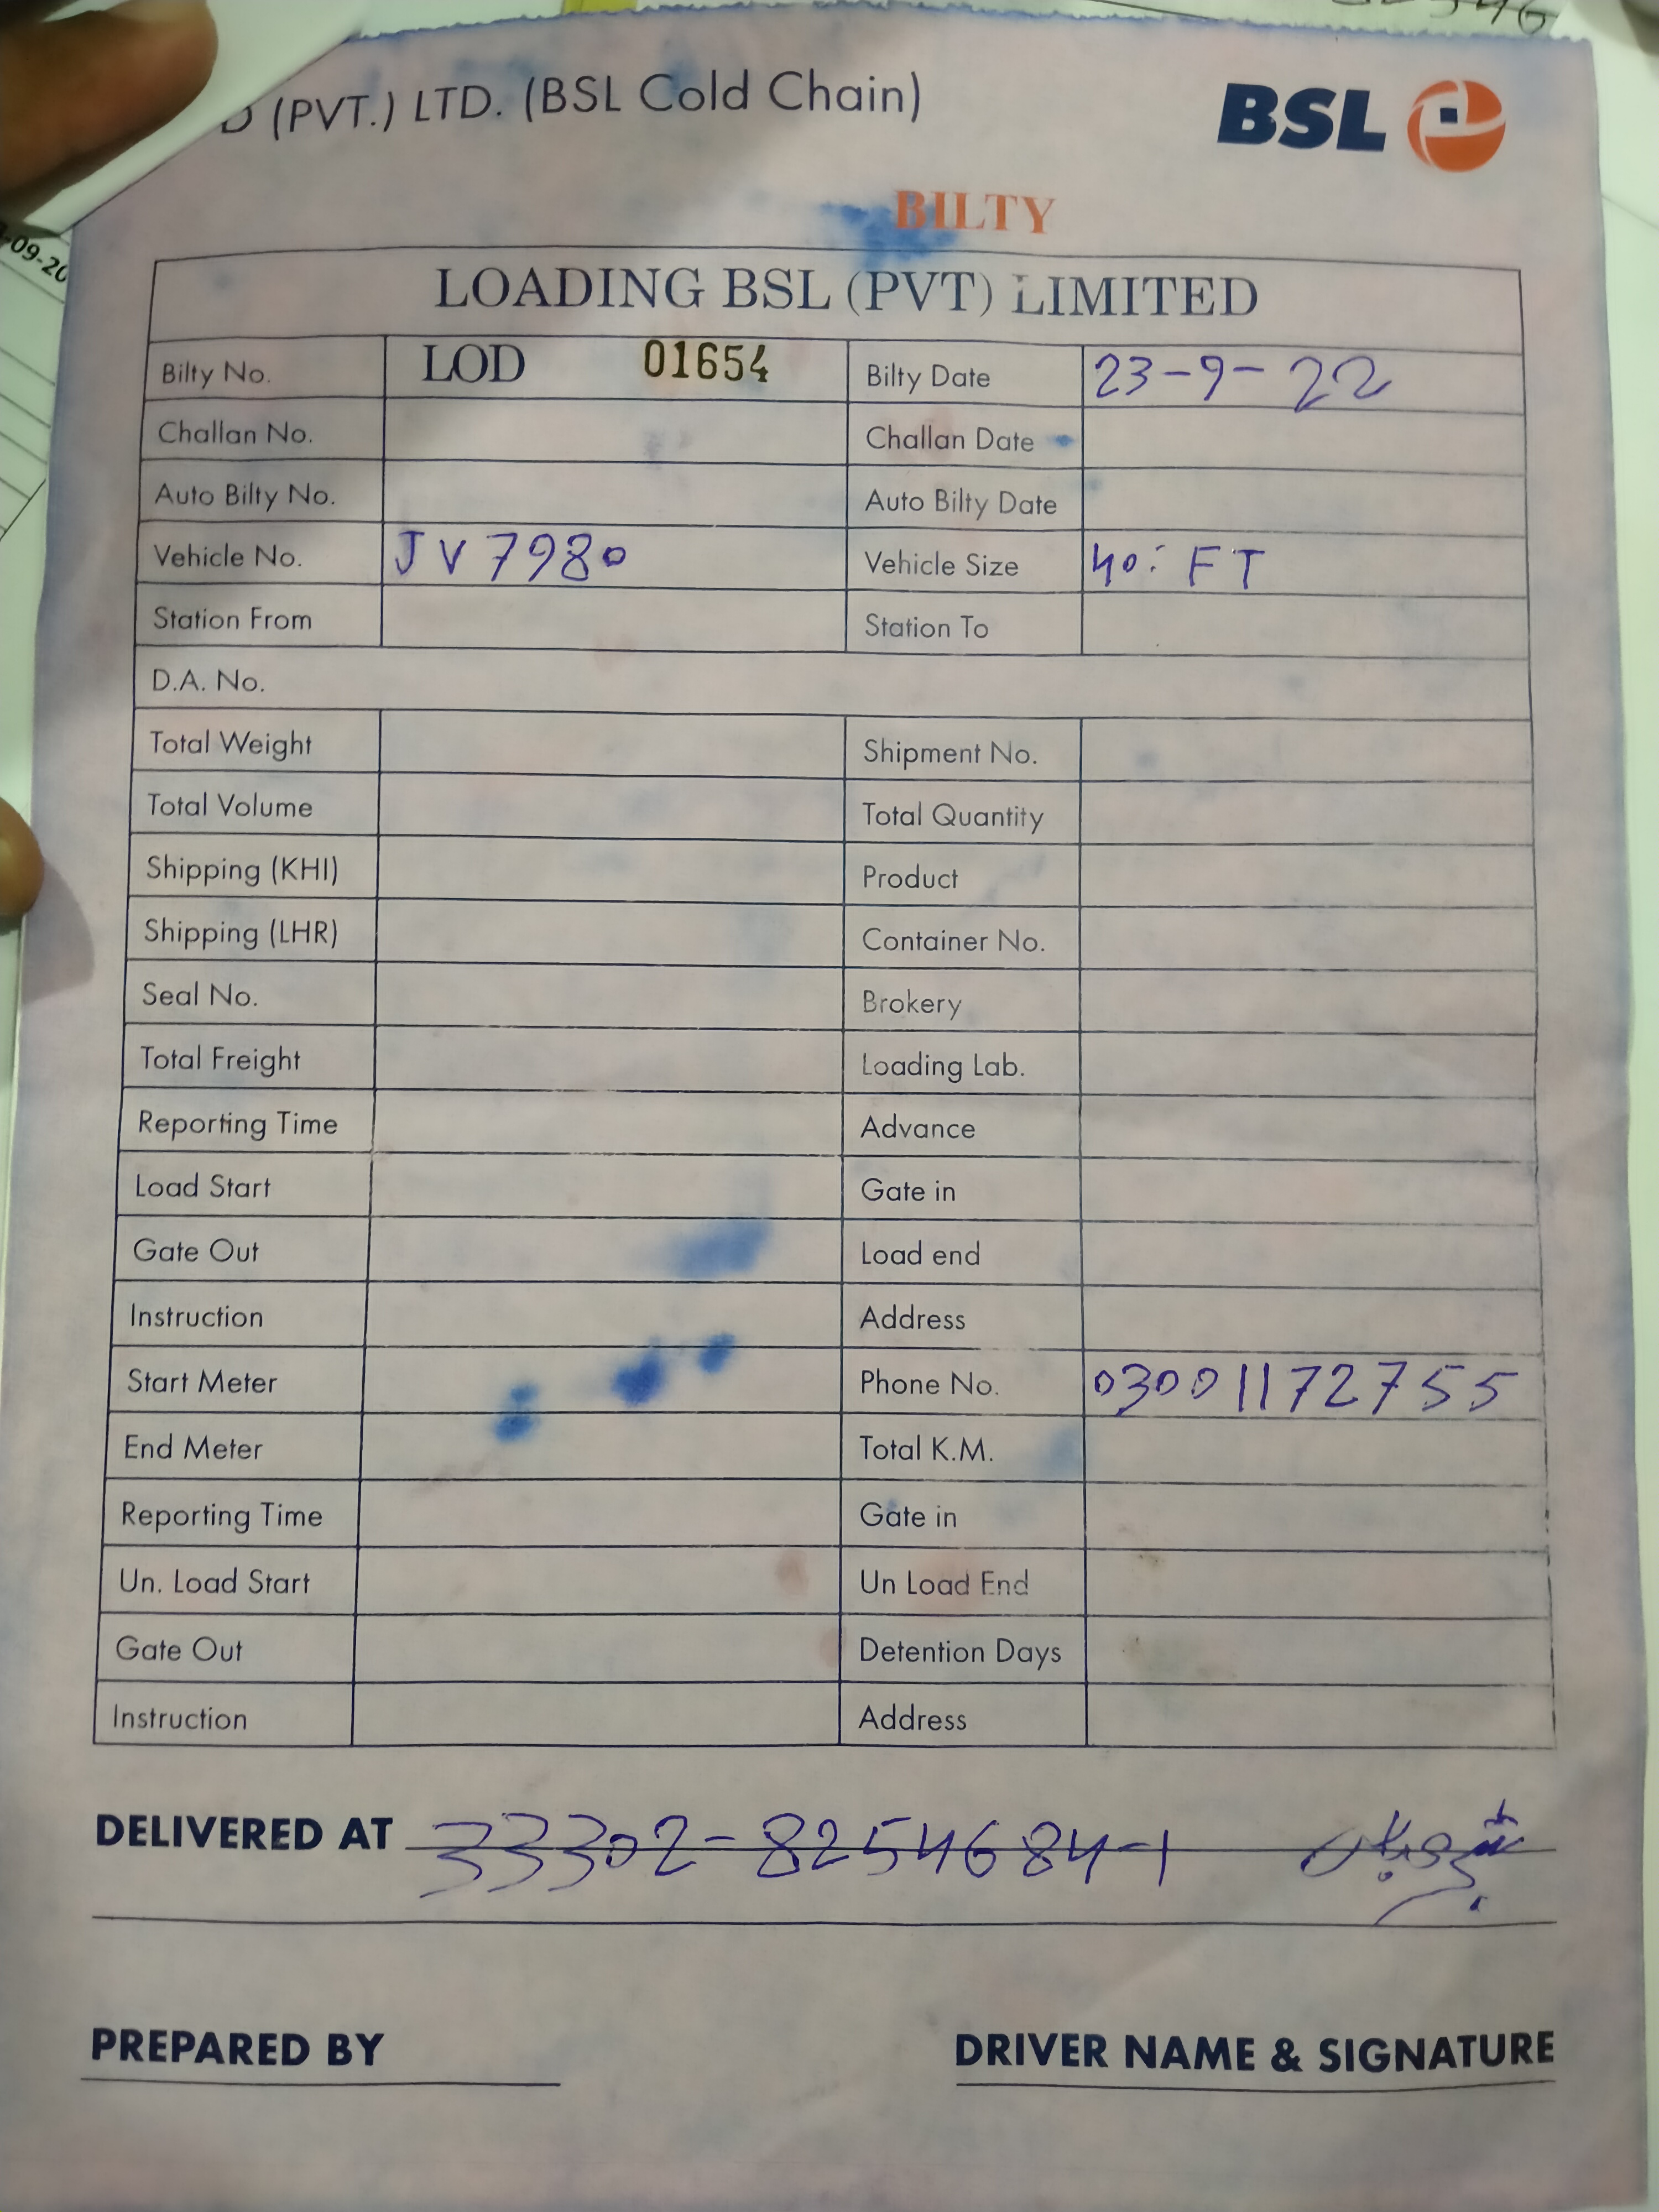 (PVT.) LTD. (BSL Cold Chain)
BSL
BILTY
LOADING BSL (PVT) LIMITED
Bilty No. LOD 01654 Bilty Date 23-9-22
Challan No. Challan Date
Auto Bilty No. Auto Bilty Date
Vehicle No. JV 7980 Vehicle Size 40: FT
Station From Station To
D.A. No.
Total Weight Shipment No.
Total Volume Total Quantity
Shipping (KHI) Product
Shipping (LHR) Container No.
Seal No. Brokery
Total Freight Loading Lab.
Reporting Time Advance
Load Start Gate in
Gate Out Load end
Instruction Address
Start Meter Phone No. 03001172755
End Meter Total K.M.
Reporting Time Gate in
Un. Load Start Un Load End
Gate Out Detention Days
Instruction Address
DELIVERED AT 33302-8254684-1
PREPARED BY DRIVER NAME & SIGNATURE